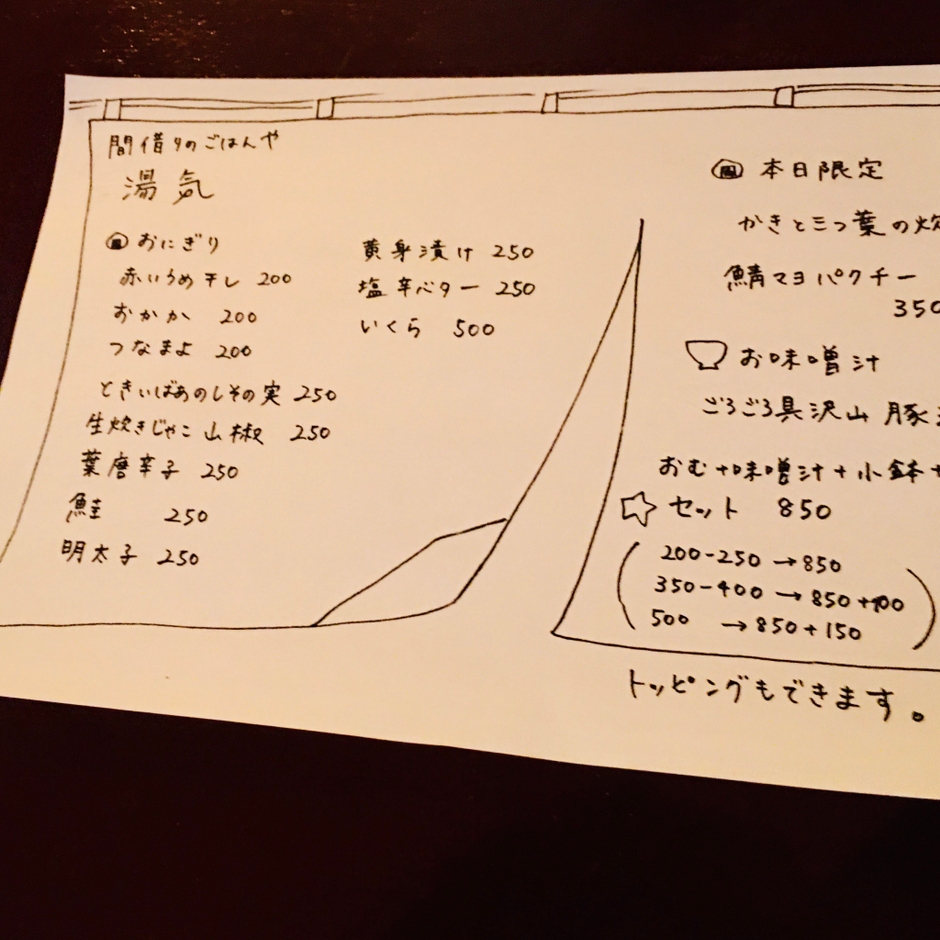 間借りのごはんや
湯気
おにぎり
赤いうめ干し 200
おかか 200
つなまよ 200
ときいばあのしその実 250
生炊きじゃこ山椒 250
葉唐辛子 250
鮭 250
明太子 250
黄身漬け 250
塩辛バター 250
いくら 500
本日限定
かきと三つ葉の炊
鯖マヨパクチー
350
お味噌汁
ごろごろ具沢山 豚
おむ+味噌汁+小鉢+
☆ セット 850
(200-250→850
350-400→850+100
500 →850+150)
トッピングもできます。